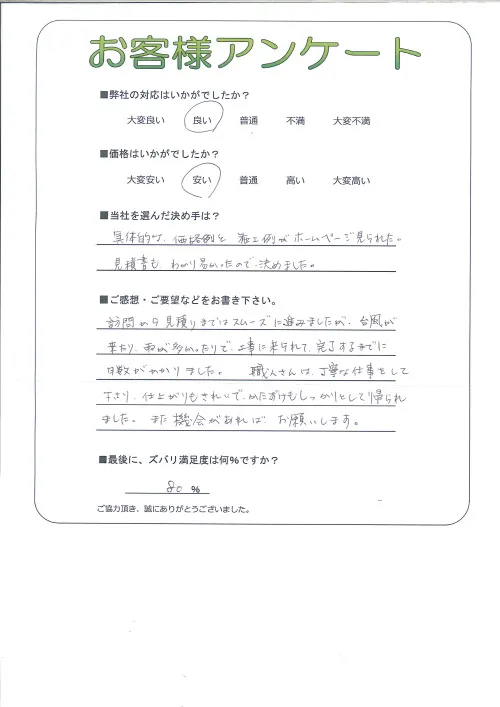 お客様アンケート
■弊社の対応はいかがでしたか？
大変良い 良い 普通 不満 大変不満
■価格はいかがでしたか？
大変安い 安い 普通 高い 大変高い
■当社を選んだ決め手は？
具体的な、価格例と 施工例がホームページ見られた。
見積書も、わかり易かったので、決めました。
■ご感想・ご要望などをお書き下さい。
訪問から見積りまではスムーズに進みましたが、台風が
来たり、雨が多かったりで、工事に来られて、完了するまでに
日数がかかりました。 職人さんは、丁寧な仕事をして
下さり、仕上がりもきれいで、かたずけもしっかりとして帰られ
ました。また機会があれば、お願いします。
■最後に、ズバリ満足度は何%ですか？
80 %
ご協力頂き、誠にありがとうございました。